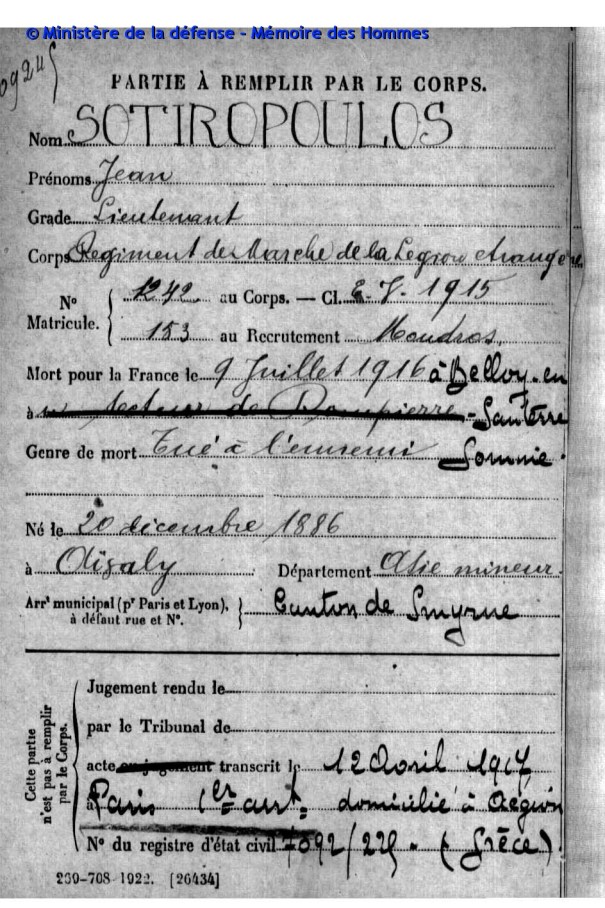 © Ministère de la défense - Mémoire des Hommes
PARTIE À REMPLIR PAR LE CORPS.
Nom SOTIROPOULOS
Prénoms Jean
Grade Lieutenant
Corps Régiment de Marche de la Légion étrangère
N° Matricule. { 1242 au Corps. — Cl. E. V. 1915
153 au Recrutement Moudros
Mort pour la France le 9 Juillet 1916 à Belloy-en
à Santerre
Genre de mort Tué à l'ennemi Somme
Né le 20 décembre 1886
à Département Asie mineur.
Arrt municipal (pr Paris et Lyon), à défaut rue et N°. } Canton de Smyrne
Cette partie n'est pas à remplir par le Corps.
Jugement rendu le
par le Tribunal de
acte ou jugement transcrit le 12 Avril 1917
à Paris 1er arrt. domicilié à Aegion
N° du registre d'état civil 7092/225 - (Grèce).
260-708-1922. [26434]